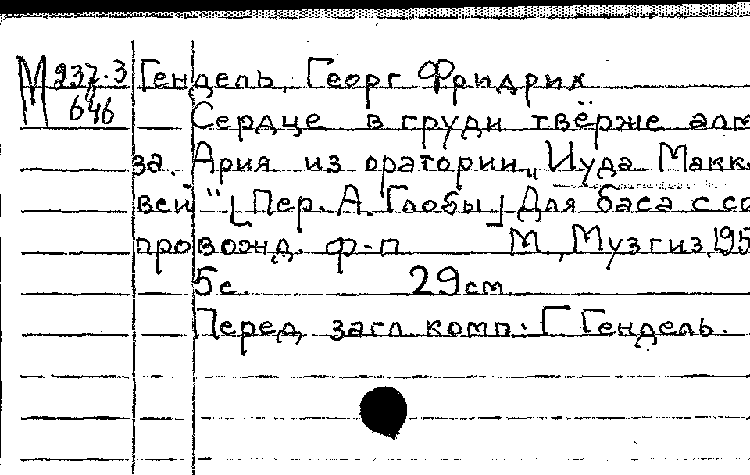 М 237.3 Гендель, Георг Фридрих
646 Сердце в груди твёрже алм
за. Ария из оратории „Иуда Макка
вей" [Пер. А. Глобы] Для баса с со
провожд. ф-п М., Музгиз, 195
5с. 29см
Перед загл. комп.: Г. Гендель.